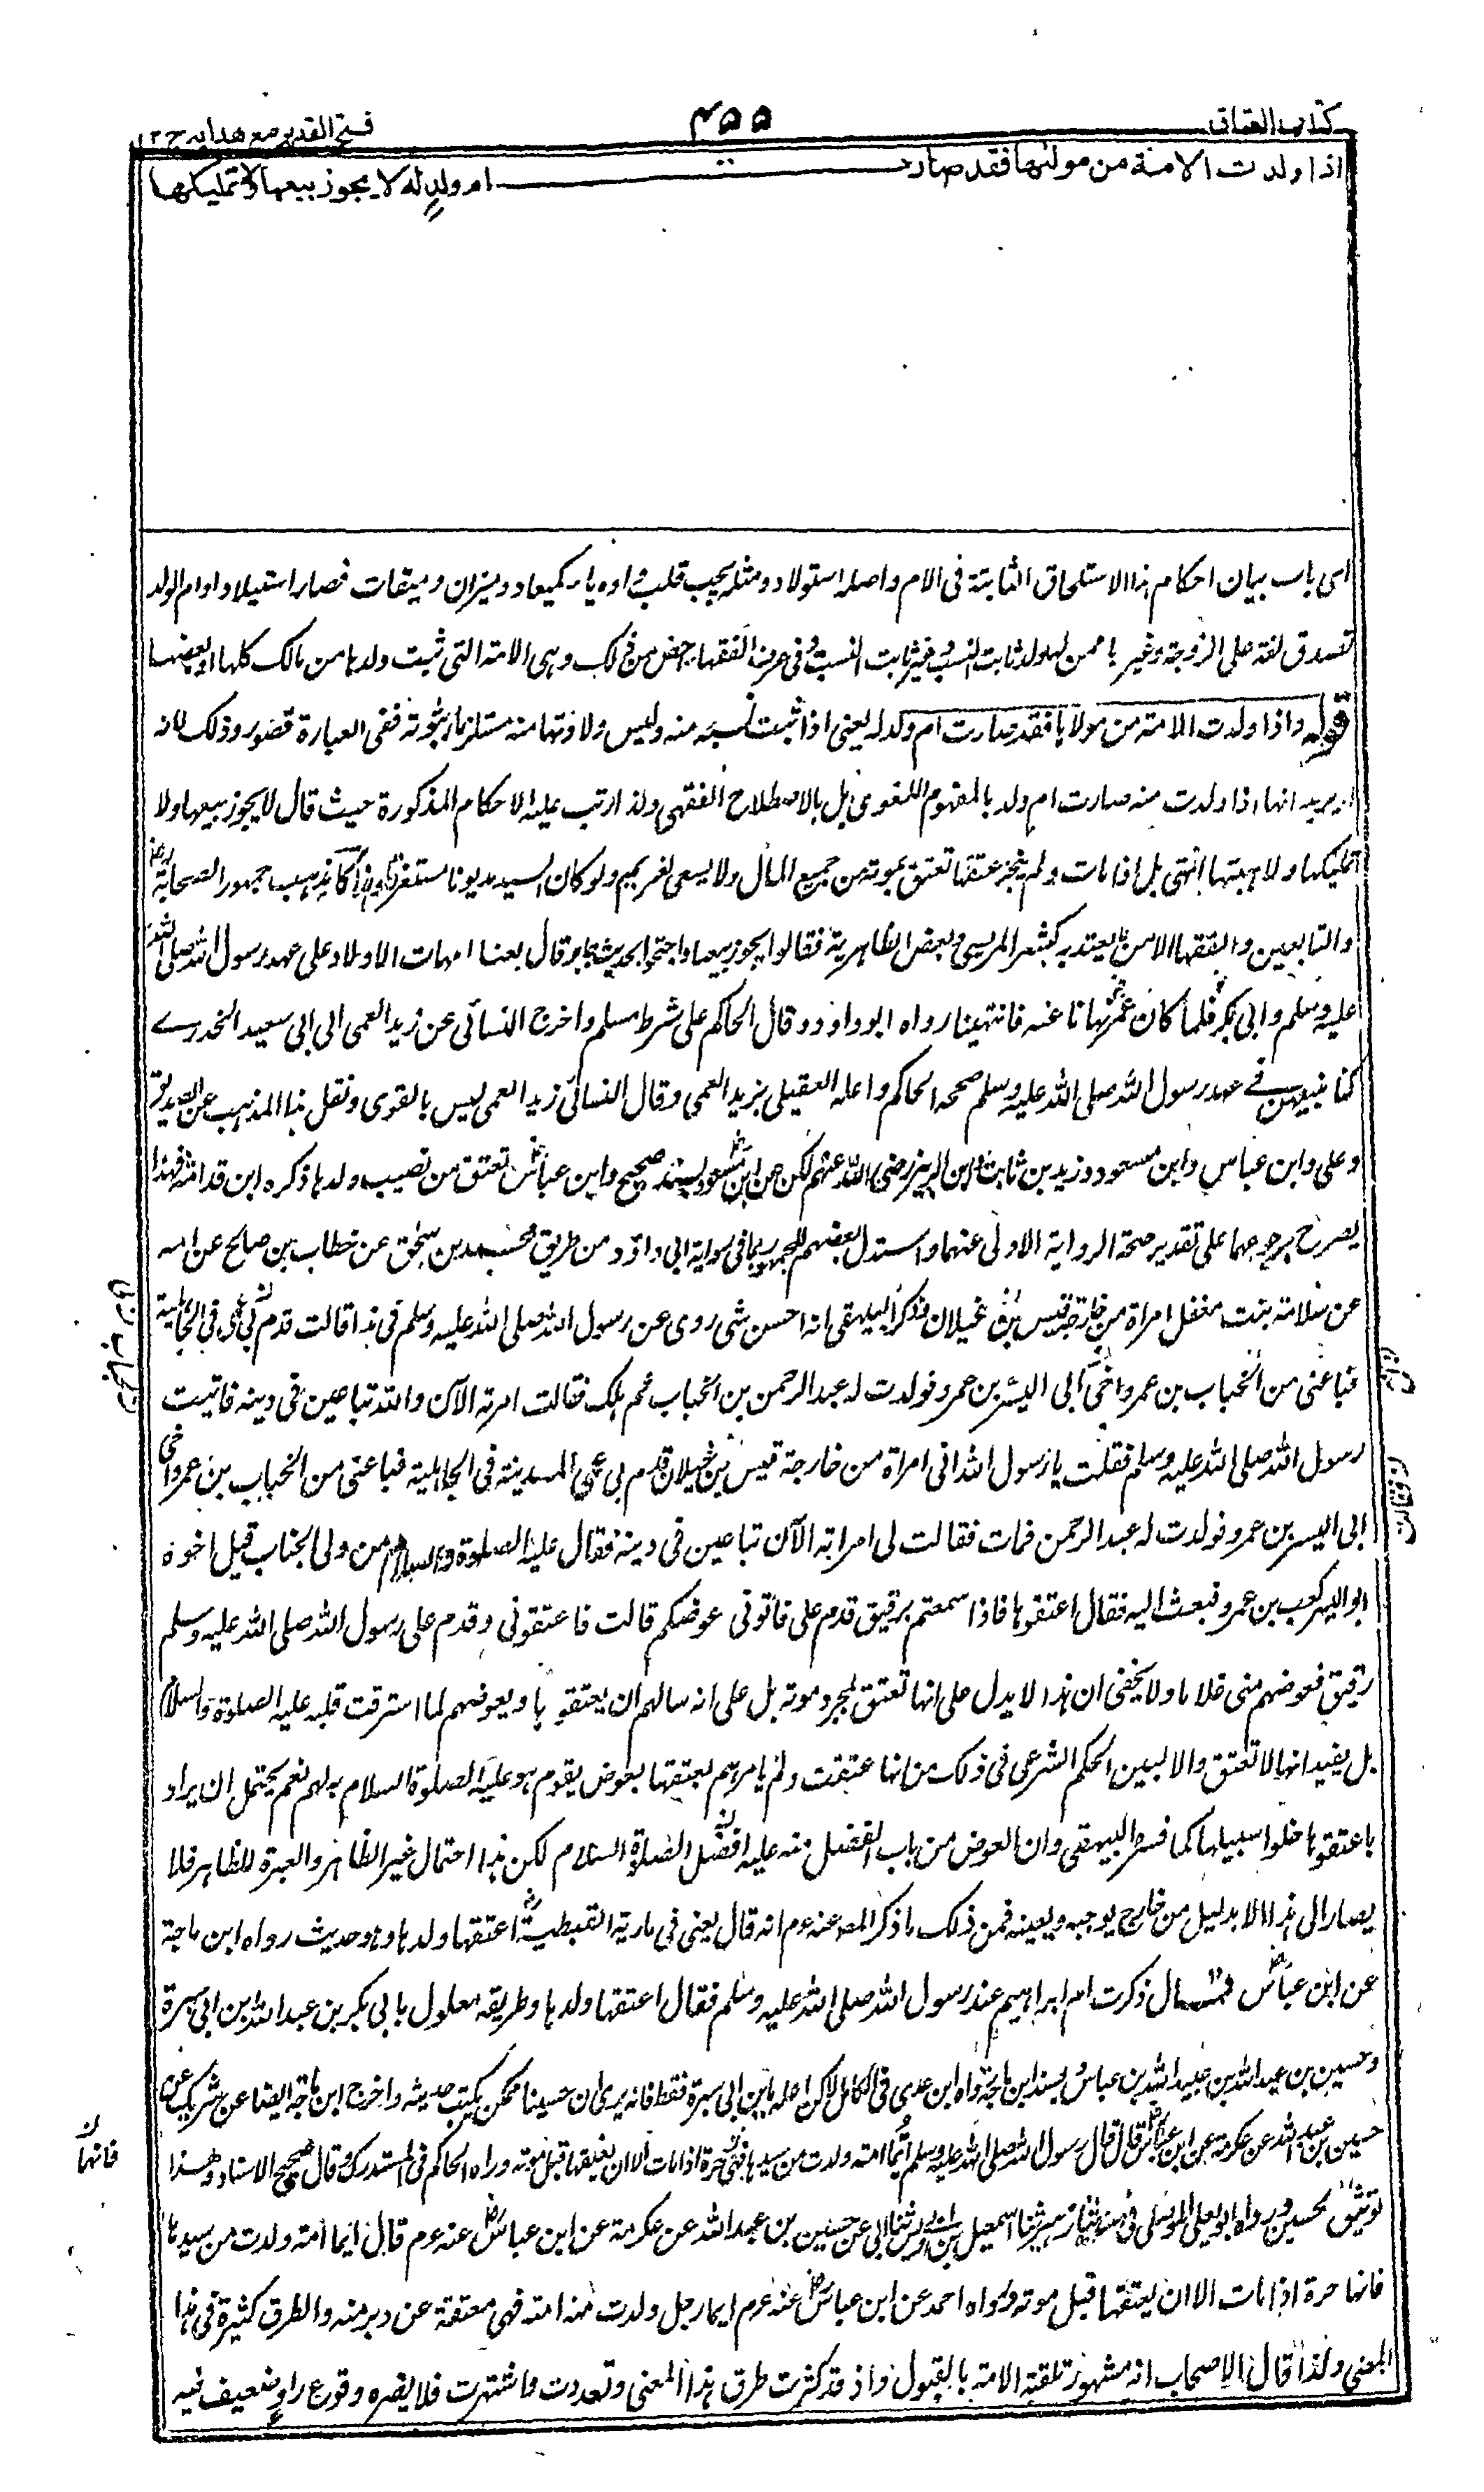 كتاب العتاق
٤٥٥
فتح القدير مع هدايه ج ٢
اذا ولدت الامة من مولٰىها فقد صارت ام ولدٍ له لا يجوز بيعها ولا تمليكها
اى باب بيان احكام هذا الاستلحاق الثابتة فى الام واصله استولاد ومثله يجب قلب واوه ياء كميعاد وميزان وميقات فصار استيلاد وام الولد
تصدق لغة على الزوجة وغيرها ممن لها ولد ثابت النسب وغير ثابت النسب وفى عرف الفقهاء اخص من ذلك وهى الامة التى ثبت ولدها من مالك كلها او بعضها
قوله واذا ولدت الامة من مولاها فقد صارت ام ولد له يعنى اذا ثبت نسبه منه وليس ولادتها منه مستلزما ثبوته ففى العبارة قصور وذلك لانه
لا يريد انها اذا ولدت منه صارت ام ولد بالمفهوم اللغوى بل بالاصطلاح الفقهى ولذا رتب عليه الاحكام المذكورة حيث قال لا يجوز بيعها ولا
تمليكها ولا هبتها انتهى بل اذا مات ولم ينجز عتقها تعتق بموته من جميع المال ولا يسعى لغريم ولو كان السيد مديونا مستغرقا وهذا مذهب جمهور الصحابة رض
والتابعين والفقهاء الا من لا يعتد به كبشر المريسى وبعض الظاهرية فقالوا يجوز بيعها واحتجوا بحديث جابر قال بعنا امهات الاولاد على عهد رسول الله صلى الله
عليه وسلم وابى بكر فلما كان عمر نهانا عنه فانتهينا رواه ابو داؤد وقال الحاكم على شرط مسلم واخرج النسائى عن زيد العمى الى ابى سعيد الخدرے
كنا نبيعهن فے عهد رسول الله صلى الله عليه وسلم صححه الحاكم واعله العقيلى بزيد العمى وقال النسائى زيد العمى ليس بالقوى ونقل هذا المذهب عن الصديق
وعلى وابن عباس وابن مسعود وزيد بن ثابت وابن الزبير رضى الله عنهم لكن عن ابن مسعود بسند صحيح وابن عباس تعتق من نصيب ولدها ذكره ابن قدامة فهذا
يصرح برجوعهما على تقدير صحة الرواية الاولى عنهما واستدل بعضهم للجمهور بما فى رواية ابى داؤد من طريق محمد بن اسحق عن خطاب بن صالح عن امه
عن سلامة بنت مغفل امراة من خارجة قيس بن غيلان وذكر البيهقى انه احسن شى روى عن رسول الله صلى الله عليه وسلم فى هذا قالت قدم بى عمى فى الجاهلية
فباعنى من الحباب بن عمرو اخى ابى اليسر بن عمرو فولدت له عبد الرحمن بن الحباب ثم هلك فقالت امرته الآن والله تباعين فى دينه فاتيت
رسول الله صلى الله عليه وسلم فقلت يا رسول الله انى امراة من خارجة قيس بن غيلان قدم بى عمى المدينة فى الجاهلية فباعنى من الحباب بن عمرو اخى
ابى اليسر بن عمرو فولدت له عبد الرحمن فمات فقالت لى امراته الآن تباعين فى دينه فقال عليه الصلوة والسلام من ولى الحباب قيل اخوه
ابو اليسر كعب بن عمرو فبعث اليه فقال اعتقوها فاذا سمعتم برقيق قدم على فاتونى عوضكم قالت فاعتقونى وقدم على رسول الله صلى الله عليه وسلم
رقيق فعوضهم منى غلاما ولا يخفى ان هذا لا يدل على انها تعتق بمجرد موته بل على انه سالهم ان يعتقوها ويعوضهم لما استرقت قلبه عليه الصلوة والسلام
بل يفيد انها لا تعتق والا لبين الحكم الشرعى فى ذلك من انها عتقت ولم يامرهم بعتقها بعوض يقوم هو عليه الصلوة السلام به لهم نعم يحتمل ان يراد
باعتقوها خلوا سبيلها كما فسره البيهقى وان العوض من باب الفضل منه عليه افضل الصلوة السلام لكن هذا احتمال غير الظاهر والعبرة للظاهر فلا
يصار الى هذا الا بدليل من خارج يوجبه ويعينه فمن ذلك ما ذكر المصـ عنه ءم انه قال يعنى فى مارية القبطية اعتقها ولدها وهو حديث رواه ابن ماجة
عن ابن عباس قال ذكرت ام ابراهيم عند رسول الله صلى الله عليه وسلم فقال اعتقها ولدها وطريقه معلول بابى بكر بن عبد الله ابن ابى سبرة
وحسين بن عبد الله بن عبيد الله بن عباس وبسند ابن ماجة رواه ابن عدى فى الكامل لكن اعله بابن ابى سبرة فقط فانه يرى ان حسينا ممكن يكتب حديثه واخرج ابن ماجة ايضا عن شريك عن
حسين بن عبد الله عن عكرمة عن ابن عباس قال قال رسول الله صلى الله عليه وسلم ايما امة ولدت من سيدها فهى حرة اذا مات الا ان يعتقها قبل موته ورواه الحاكم فى المستدرك وقال صحيح الاسناد وهذا
توثيق لحسين ورواه ابو يعلى الموصلى فى مسنده ثنا زهير ثنا اسمعيل بن ابى اويس ثنا ابى عن حسين بن عبد الله عن عكرمة عن ابن عباس عنه ءم قال ايما امة ولدت من سيدها
فانها حرة اذا مات الا ان يعتقها قبل موته ورواه احمد عن ابن عباس عنه ءم ايما رجل ولدت منه امته فهى معتقة عن دبر منه والطرق كثيرة فى هذا
المعنى ولذا قال الاصحاب انه مشهور تلقته الامة بالقبول واذ قد كثرت طرق هذا المعنى وتعددت واشتهرت فلا يضره وقوع راوٍ ضعيف فيه
فانها